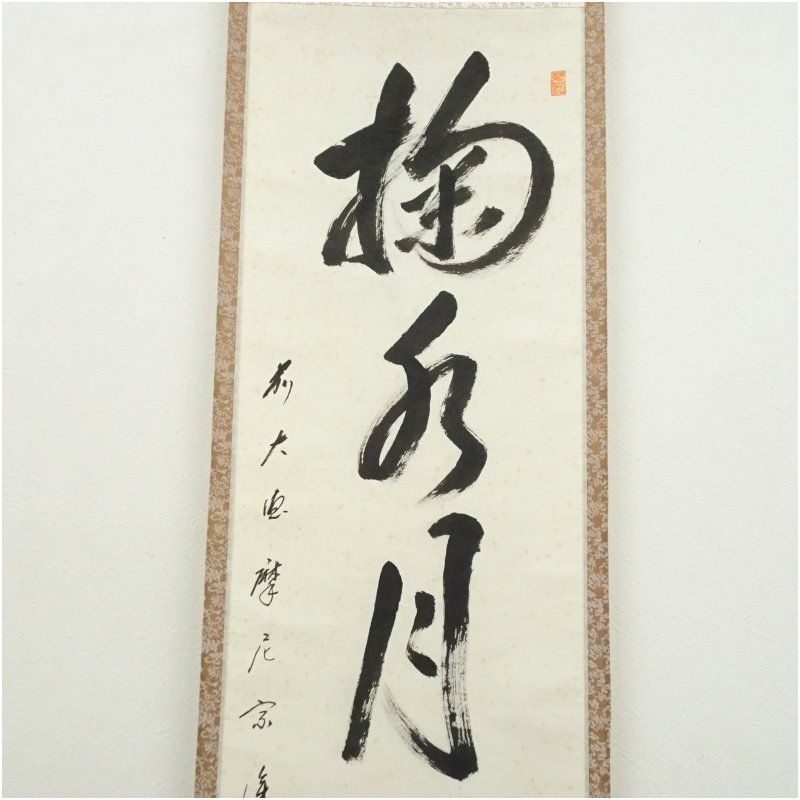 掬水月
前大徳摩尼宗